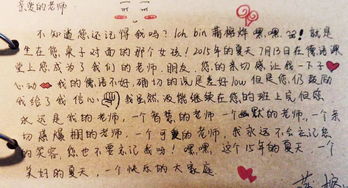 亲爱的老师
不知道您还记得我吗？Ich bin 葡萄 嘿嘿，就是
坐在您桌子对面的那个女孩！2015年的夏天7月13日在德语课
堂上您成为了我们的老师、朋友，您的亲切感让我一下子
心动 我的德语不好，确切的说是差好low 但是您仍鼓励
我给了我信心，我虽然没能继续在您的班上 但您
永远是我的老师，一个智慧的老师一个幽默的老师，一个亲
切爆棚的老师，一个可爱的老师，我永远不会忘记您
的笑容，您也不要忘记我哟！嘿嘿，这个15年的夏天，一个
美好的夏天，一个快乐的大家庭